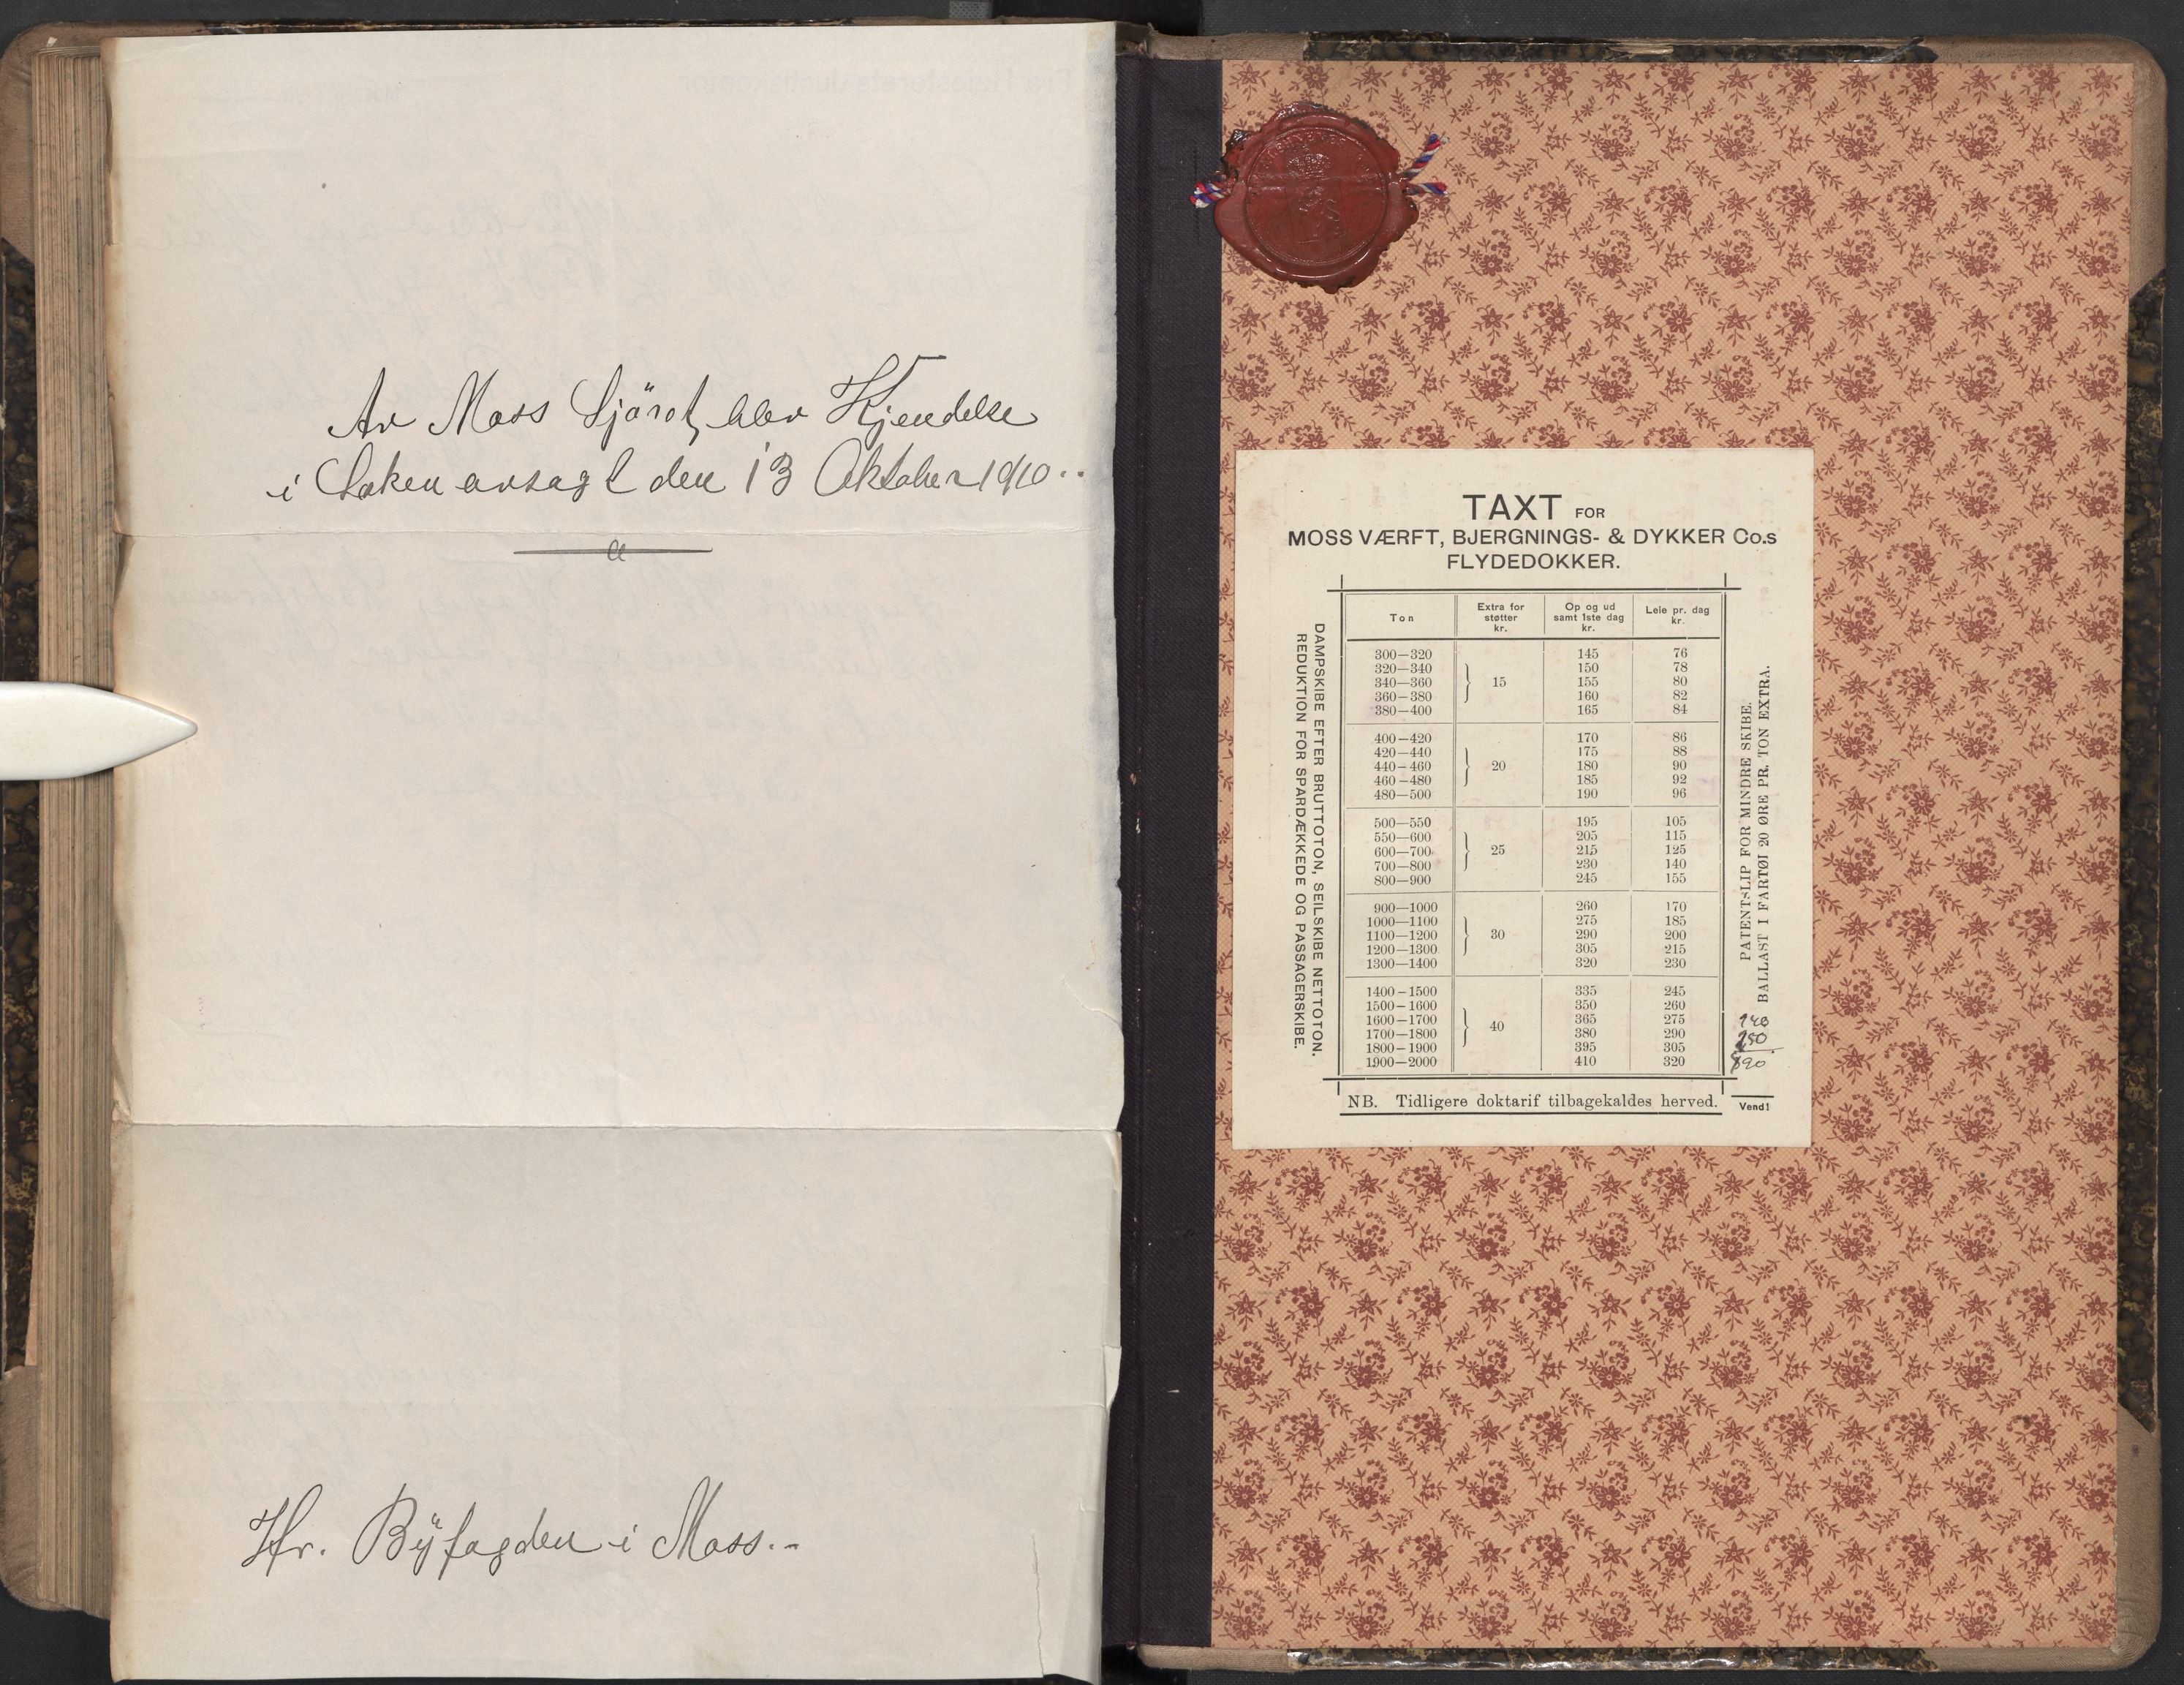 Av Moss Sjöret blev Kjendelse
i Saken avsagt den 13 Oktober 1910..
Hr. Byfogden i Moss.-
TAXT FOR
MOSS VÆRFT, BJERGNINGS- & DYKKER Co.s
FLYDEDOKKER.
DAMPSKIBE EFTER BRUTTOTON, SEILSKIBE NETTOTON.
REDUKTION FOR SPARDÆKKEDE OG PASSAGERSKIBE.
Ton Extra for støtter kr. Op og ud samt 1ste dag kr. Leie pr. dag kr.
300—320 145 76
320—340 150 78
340—360 15 155 80
360—380 160 82
380—400 165 84
400—420 170 86
420—440 175 88
440—460 20 180 90
460—480 185 92
480—500 190 96
500—550 195 105
550—600 205 115
600—700 25 215 125
700—800 230 140
800—900 245 155
900—1000 260 170
1000—1100 275 185
1100—1200 30 290 200
1200—1300 305 215
1300—1400 320 230
1400—1500 335 245
1500—1600 350 260
1600—1700 40 365 275
1700—1800 380 290
1800—1900 395 305
1900—2000 410 320
PATENTSLIP FOR MINDRE SKIBE.
BALLAST I FARTØI 20 ØRE PR. TON EXTRA.
NB. Tidligere doktarif tilbagekaldes herved.
Vend!